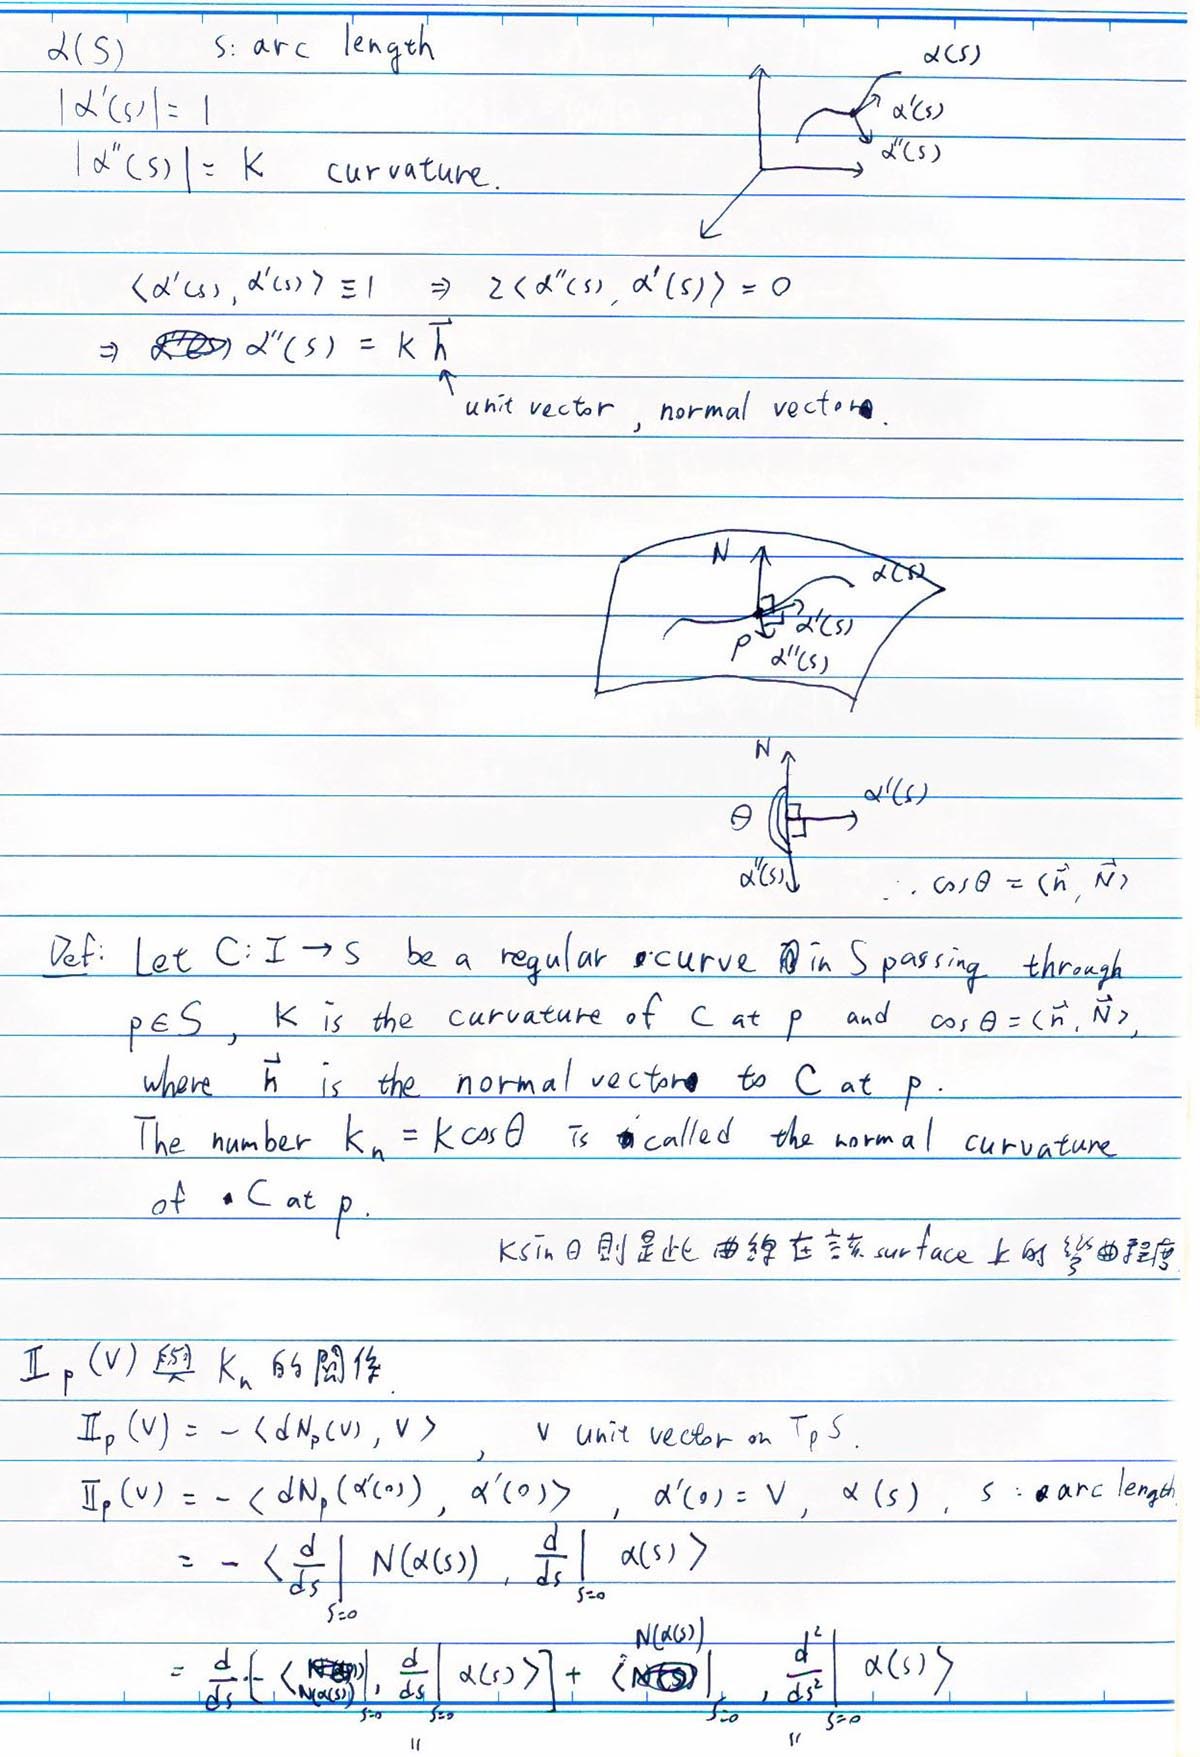 α(s)  s: arc length
|α'(s)| = 1
|α''(s)| = K  curvature.
α(s)
α'(s)
α''(s)
⟨α'(s), α'(s)⟩ ≡ 1 ⇒ 2⟨α''(s), α'(s)⟩ = 0
⇒ α''(s) = K n⃗
↑ unit vector, normal vector.
N
α(s)
α'(s)
p
α''(s)
N
α'(s)
θ
α''(s)
∴ cosθ = ⟨n⃗, N⃗⟩
Def: Let C: I → S be a regular curve in S passing through
p∈S, K is the curvature of C at p and cosθ = ⟨n⃗, N⃗⟩,
where n⃗ is the normal vector to C at p.
The number Kₙ = K cosθ is called the normal curvature
of C at p.
K sinθ 則是此曲線在該 surface 上的彎曲程度
Ⅱp(V) 與 Kₙ 的關係.
Ⅱp(V) = -⟨dNp(V), V⟩, V unit vector on TpS.
Ⅱp(V) = -⟨dNp(α'(0)), α'(0)⟩, α'(0) = V, α(s), s: arc length
= -⟨d/ds|s=0 N(α(s)), d/ds|s=0 α(s)⟩
= d/ds[-⟨N(α(s))|s=0, d/ds|s=0 α(s)⟩] + ⟨N(α(s))|s=0, d²/ds²|s=0 α(s)⟩
" "